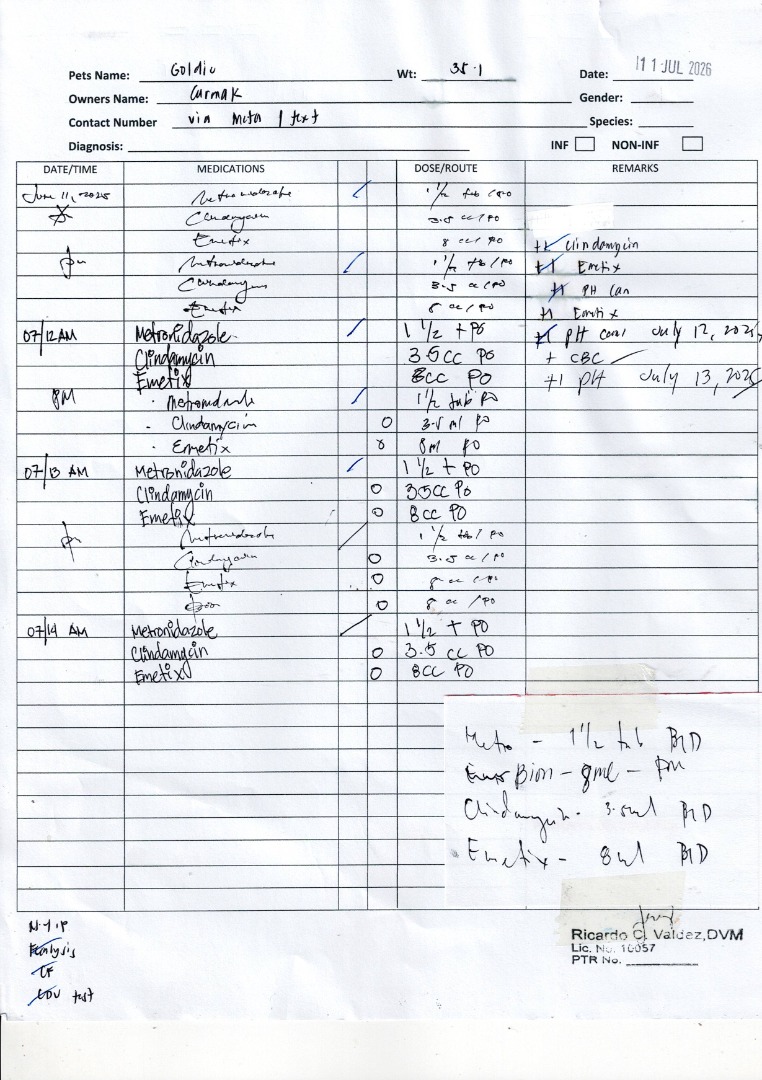 Pets Name: Goldie Wt: 35.1 Date: 11 JUL 2026
Owners Name: Carmak Gender:
Contact Number via Meta / text Species:
Diagnosis: INF NON-INF
DATE/TIME MEDICATIONS DOSE/ROUTE REMARKS
June 11, 2025 Metronidazole 1 1/2 tab / PO
Clindamycin 3.5 cc / PO
Emetix 8 cc / PO +1 Clindamycin
pm Metronidazole 1 1/2 tb / PO +1 Emetix
Clindamycin 3.5 cc / PO +1 PH Can
Emetix 8 cc / PO +1 Emetix
07/12 AM Metronidazole 1 1/2 t PO +1 PH can July 12, 2025
Clindamycin 3.5cc PO + CBC
Emetix 8cc PO +1 PH July 13, 2025
PM - Metronidazole 1 1/2 tab PO
- Clindamycin O 3.5 ml PO
- Emetix 8ml PO
07/13 AM Metronidazole 1 1/2 t PO
Clindamycin O 3.5cc PO
Emetix O 8cc PO
pm Metronidazole 1 1/2 tab / PO
Clindamycin O 3.5 cc / PO
Emetix O 8 cc / PO
O 8 cc / PO
07/14 AM Metronidazole 1 1/2 t PO
Clindamycin O 3.5 cc PO
Emetix O 8cc PO
Metro - 1 1/2 tab BID
Bion - 8ml - PM
Clindamycin - 3.5ml BID
Emetix - 8ml BID
Ricardo C. Valdez, DVM
Lic. No. 10057
PTR No.
CDV test